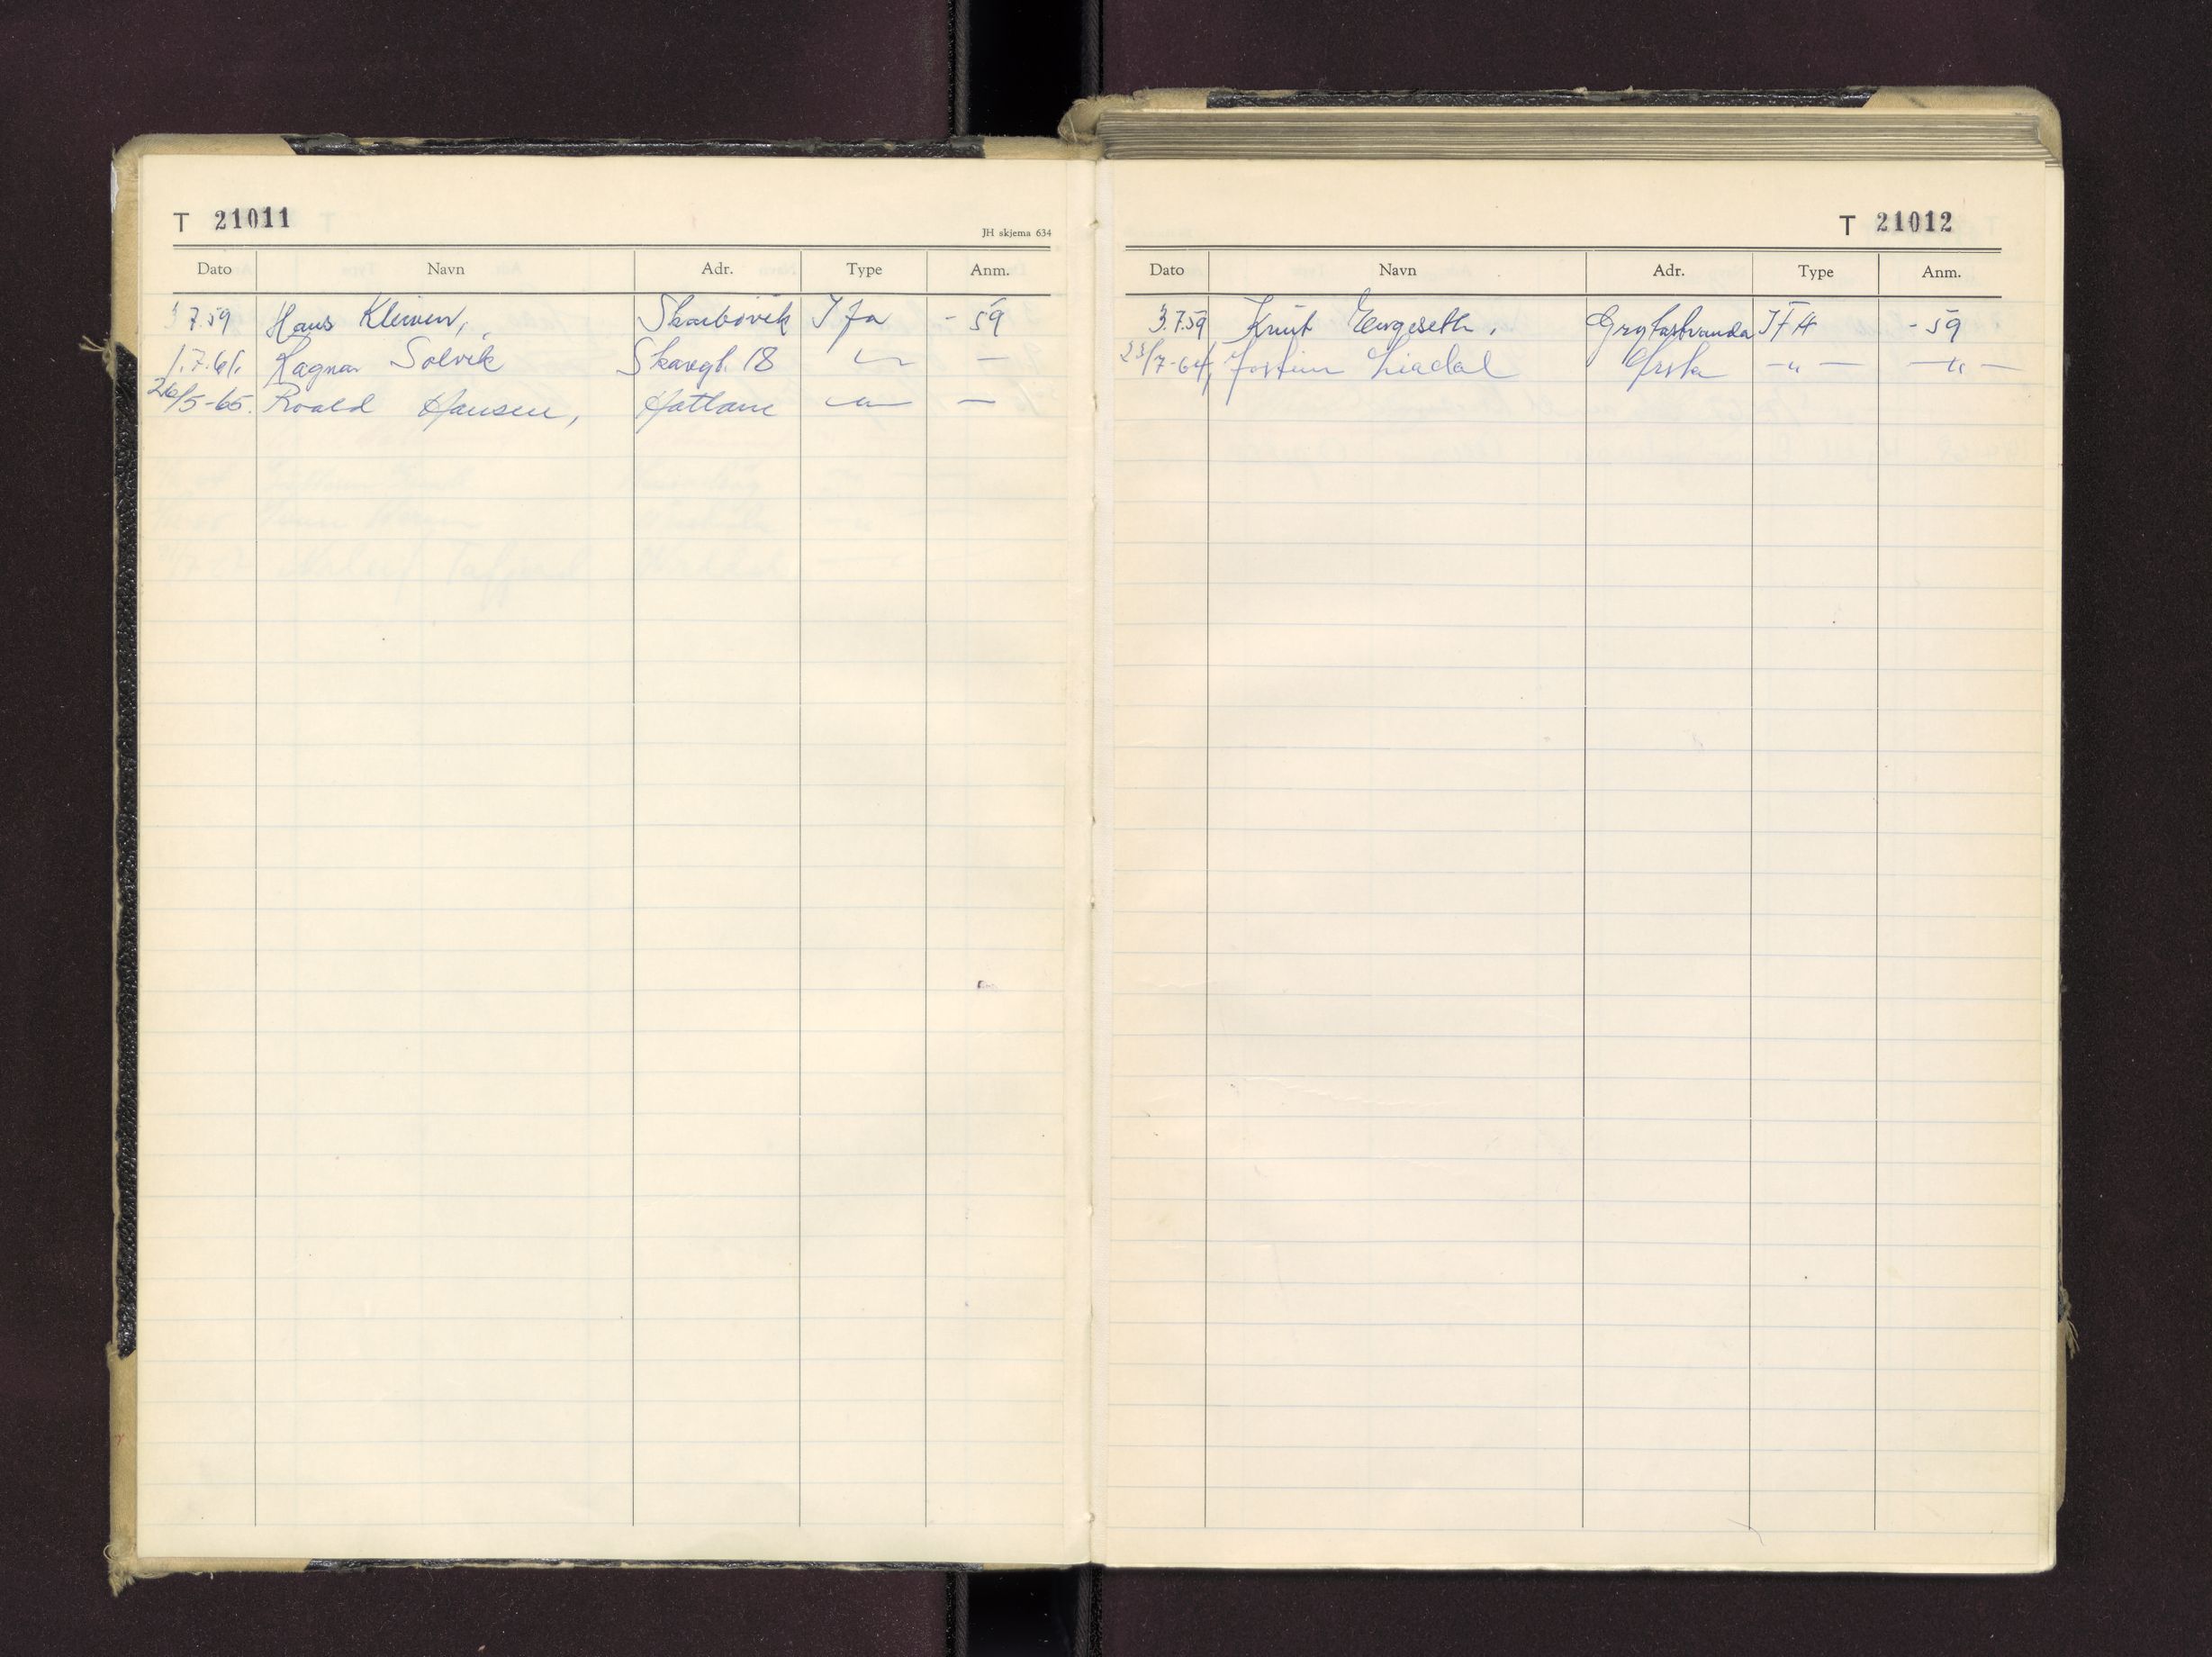 T 21011
JH skjema 634
Dato Navn Adr. Type Anm.
3.7.59 Hans Kleiven, Skarbövik Ifa - 59
1.7.61. Ragnar Solvik Skaregt. 18 —"— —
26/5-65. Roald Hansen, Hatlane —"— —
T 21012
Dato Navn Adr. Type Anm.
3.7.59 Knut Engeseth. IFA - 59
23/7-64, Jostein Liadal Ørsta —"— —"—